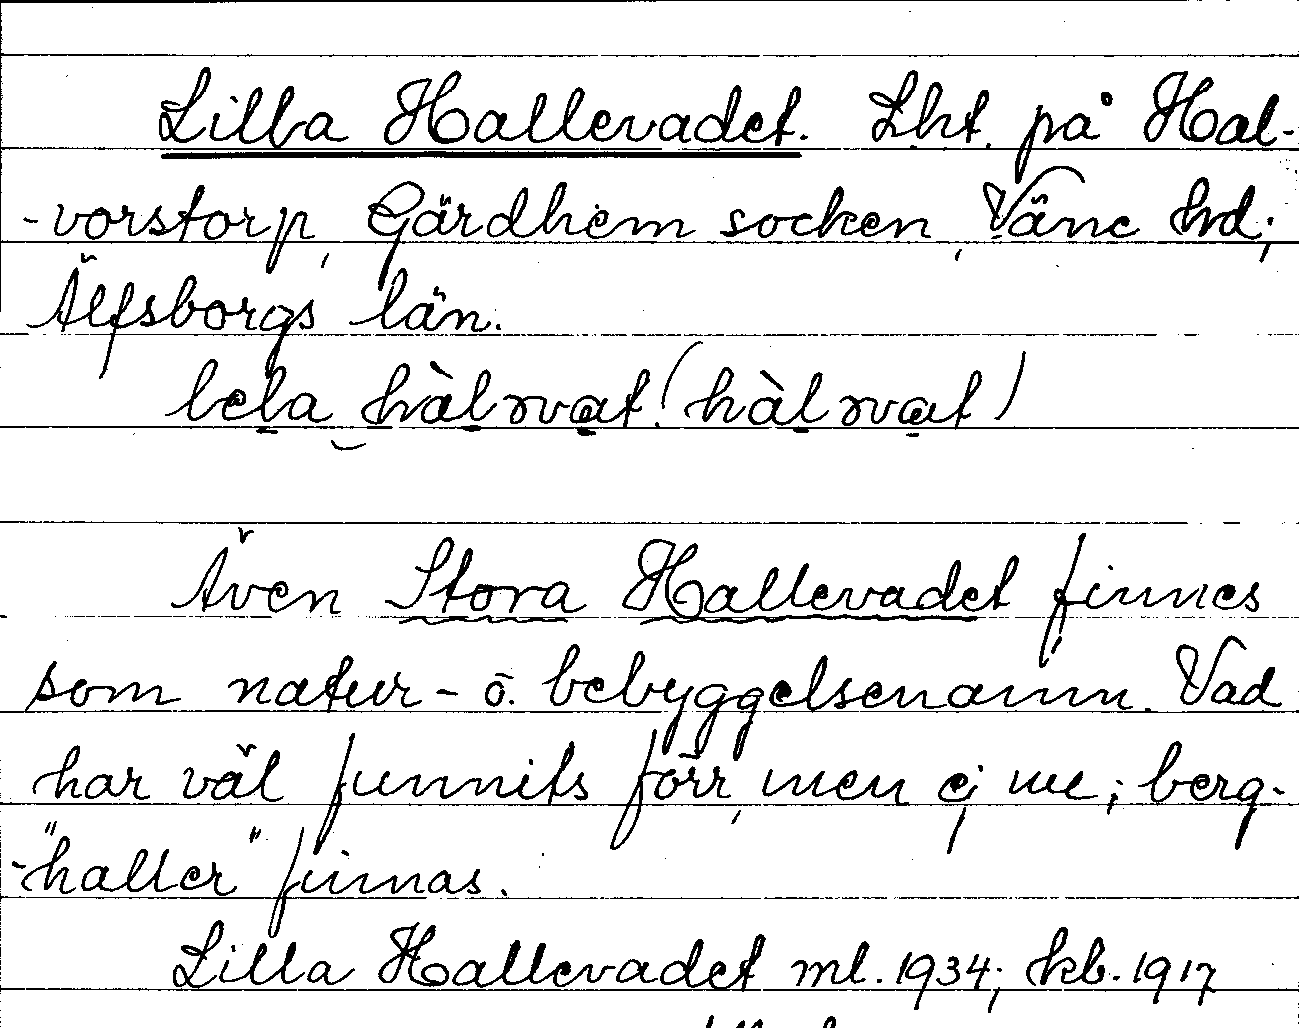 Lilla Hallevadet. Lht. på Hal-
-vorstorp, Gärdhem socken, Väne hd;
Älfsborgs län.
lela hàlvat. (hàlvat)
Även Stora Hallevadet finnes
som natur- o. bebyggelsenamn. Vad
har väl funnits förr, men ej nu; berg-
-"haller" finnas.
Lilla Hallevadet ml. 1934; kb. 1917